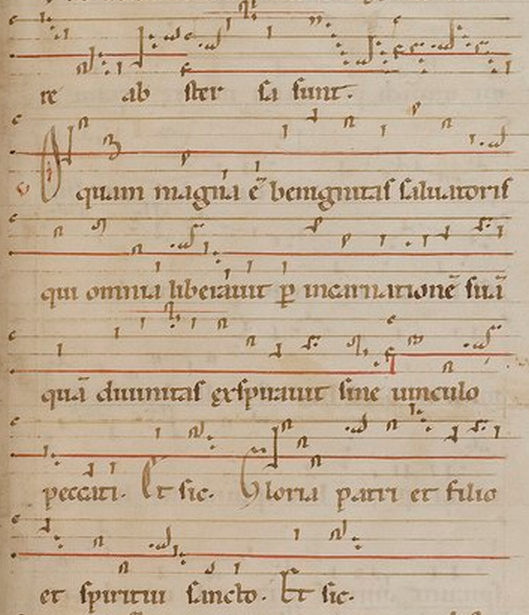 re ab ster sa sunt.
O quam magna ē benignitas saluatoris
qui omnia liberauit p̄ incarnationē suā
quā diuinitas exspirauit sine uinculo
peccati. Et sic. Gloria patri et filio
et spiritui sancto. Et sic.